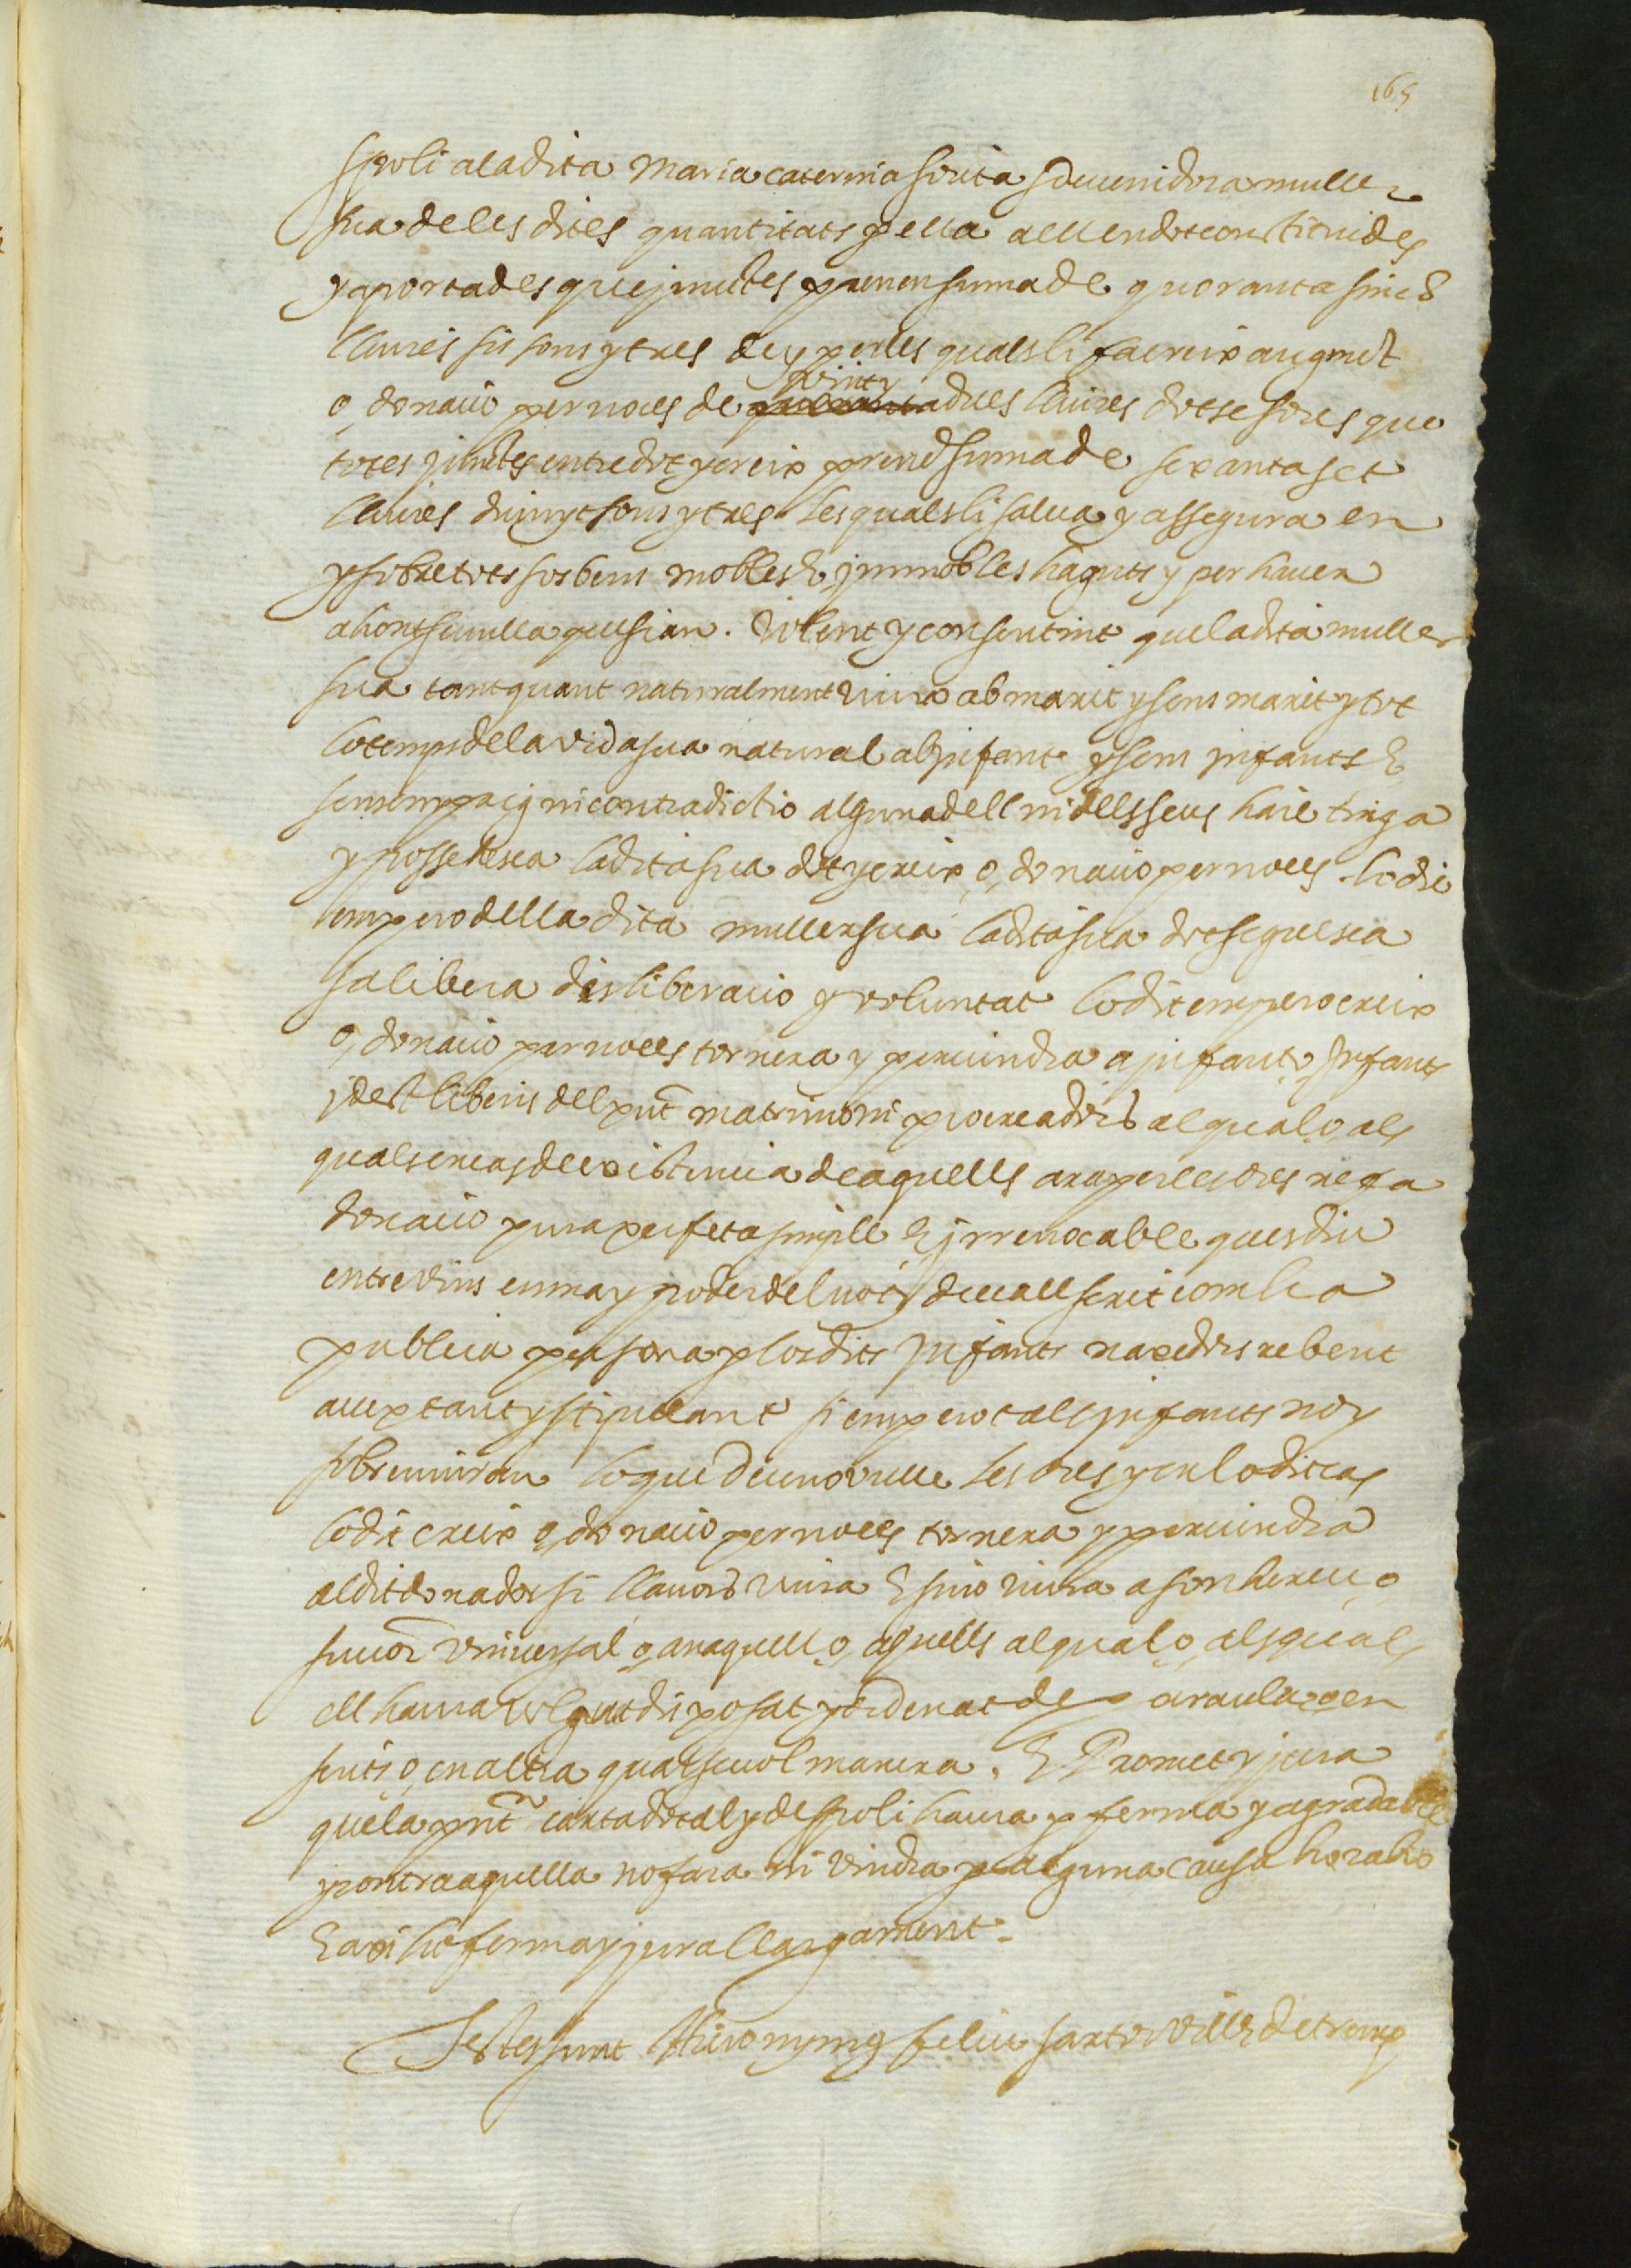 165
spoli a la dita Maria Caterina Sorita sdeuenidora muller
sua de les dites quantitats p ella a ell en dot constituides
y aportades que juntes prenen suma de quoranta sinch
lliures sis sous y tres de y per les quals li fa creix augmt
o, donacio per noces de vint y dues lliures dotse sous que
totes juntes entre dot y creix prenen suma de sexanta set
lliures divuyt sous y tres les quals li salua y assegura en
y sobre tots sos bens mobles & immobles haguts y per hauer
ahont seuulla que sian. Volent y consentint que la dita muller
sua tant quant naturalment viura ab marit y sens marit y tot
lo temps de la vida sua natural ab infants y sens infants &
sens empaig ni contradictio alguna dell ni dels seus haie tinga
y possehesca la dita sua dot y creix o, donacio per noces. lo die
empero de lla dita muller sua la dita sua dot seguesca
sa libera desliberacio y voluntat lo dit empero creix
o, donacio per noces tornera y peruindra a infant o, infants
y dest liberis del pnt matrimoni procreadors al qual o, als
quals en cas de existencia de aquells ara per les ores ne fa
donacio pura perfeta simple & irreuocable ques diu
entre vius en ma y poder del not deuall scrit com a
publica persona p los dits infants naxedors rebent
acceptant y stipulant si empero tals infants noy
sobreuiuran lo que deu no vulle les ores y en lo dit cas
lo dit creix o, donacio per noces tornera y peruindra
al dit donador si llauors viura & sino viura a son hereu o,
succor vniuersal o, an aquell o, aquells al qual o, als quals
ell haura volgut disposat y ordenat de paraula o en
scrits o, en altra qualseuol manera. & Promet y jura
que la pnt carta dotal y de spoli haura p ferma y agradable
y contra aquella no fara ni vindra p alguna causa ho raho
& axi ho ferma y jura llargament.
Testes sunt Hieronymus feliu sartor ville de tremp